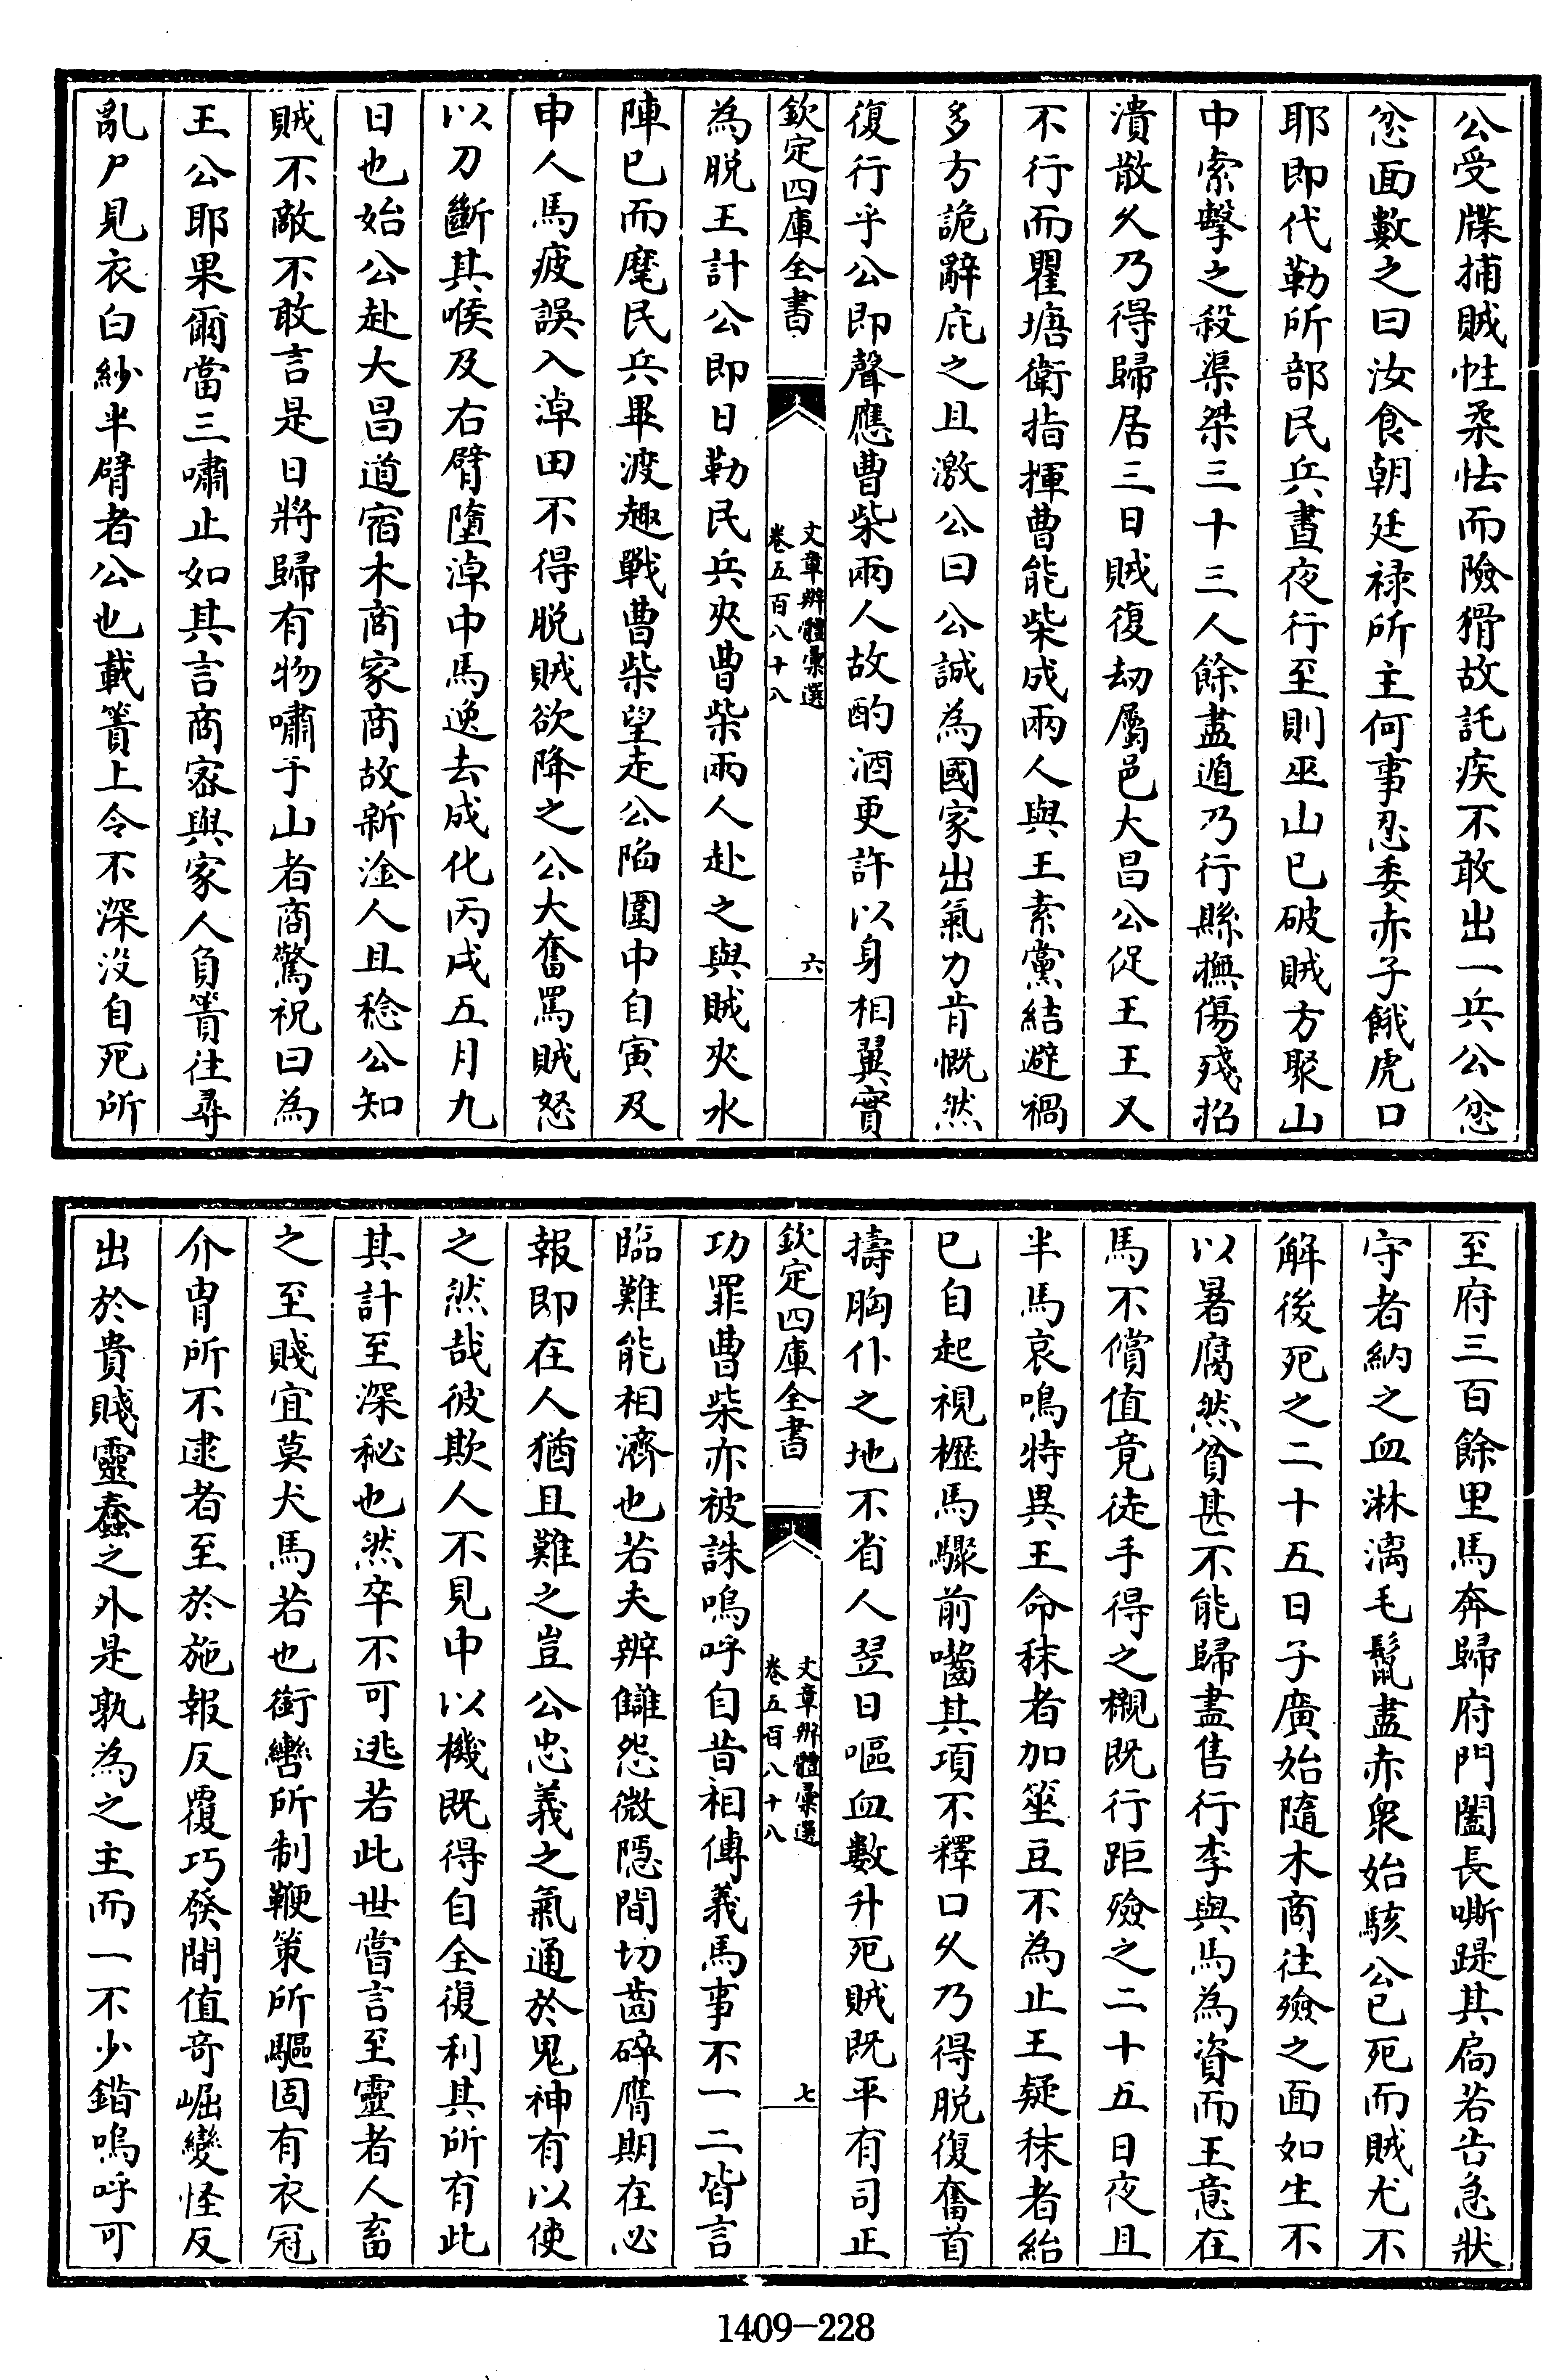 公受牒捕賊性柔怯而險猾故託疾不敢出一兵公忿
忿面數之曰汝食朝廷祿所主何事忍委赤子餓虎口
耶即代勒所部民兵晝夜行至則巫山已破賊方聚山
中索擊之殺渠桀三十三人餘盡遁乃行縣撫傷殘招
潰散久乃得歸居三日賊復劫屬邑大昌公促王王又
不行而瞿塘衛指揮曹能柴成兩人與王素黨結避禍
多方詭辭庇之且激公曰公誠為國家出氣力肯慨然
復行乎公即聲應曹柴兩人故酌酒更許以身相翼實
欽定四庫全書
文章辨體彙選
卷五百八十八
六
為脫王計公即日勒民兵夾曹柴兩人赴之與賊夾水
陣已而麾民兵畢渡趣戰曹柴望走公陷圍中自寅及
申人馬疲誤入淖田不得脫賊欲降之公大奮罵賊怒
以刀斷其喉及右臂墮淖中馬逸去成化丙戌五月九
日也始公赴大昌道宿木商家商故新淦人且稔公知
賊不敵不敢言是日將歸有物嘯于山者商驚祝曰為
王公耶果爾當三嘯止如其言商密與家人負簣往尋
亂尸見衣白紗半臂者公也載簣上令不深沒自死所
至府三百餘里馬奔歸府門闔長嘶踶其扃若告急狀
守者納之血淋漓毛鬛盡赤衆始駭公已死而賊尤不
解後死之二十五日子廣始隨木商往殮之面如生不
以暑腐然貧甚不能歸盡售行李與馬為資而王意在
馬不償值竟徒手得之櫬既行距殮之二十五日夜且
半馬哀鳴特異王命秣者加莝豆不為止王疑秣者紿
已自起視櫪馬驟前嚙其項不釋口久乃得脫復奮首
擣胸仆之地不省人翌日嘔血數升死賊既平有司正
欽定四庫全書
文章辨體彙選
卷五百八十八
七
功罪曹柴亦被誅嗚呼自昔相傳義馬事不一二皆言
臨難能相濟也若夫辨讎怨微隱間切齒碎膺期在必
報即在人猶且難之豈公忠義之氣通於鬼神有以使
之然哉彼欺人不見中以機既得自全復利其所有此
其計至深秘也然卒不可逃若此世嘗言至靈者人畜
之至賤宜莫犬馬若也銜轡所制鞭策所驅固有衣冠
介冑所不逮者至於施報反覆巧發間值竒崛變怪反
出於貴賤靈蠢之外是孰為之主而一不少錯嗚呼可
1409-228